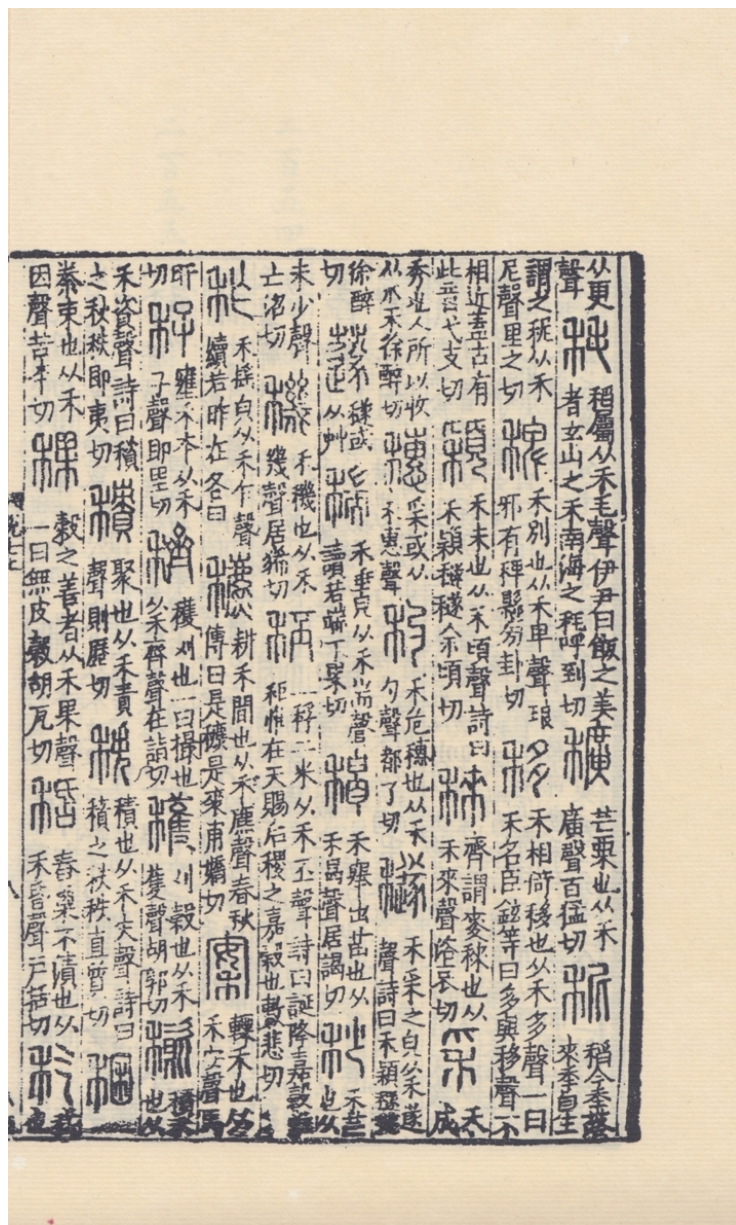 从更聲秏稻屬从禾毛聲伊尹曰飯之美者玄山之禾南海之秏呼到切穬芒粟也从禾廣聲百猛切秜稻今秊落來秊自生
謂之秜从禾尼聲里之切稗禾別也从禾卑聲琅邪有稗縣旁卦切移禾相倚移也从禾多聲一曰禾名臣鉉等曰多與移聲不
相近蓋古有此音弋支切穎禾末也从禾頃聲詩曰禾穎穟穟余頃切䅘齊謂麥䅘也从禾來聲洛哀切采禾成
秀也人所以收从爪禾徐醉切穗采或从禾惠聲禾危穗也从禾勺聲都了切穟禾采之皃从禾遂聲詩曰禾穎穟穟
徐醉切穟或从艸禾垂皃从禾耑聲讀若端丁果切禾舉出苗也从禾曷聲居謁切秒禾芒也从
禾少聲亡沼切穖禾穖也从禾幾聲居狶切秠一稃二米从禾丕聲詩曰誕降嘉穀惟秬惟秠天賜后稷之嘉穀也敷悲切
秨禾搖皃从禾乍聲讀若昨在各切穮耕禾間也从禾麃聲春秋傳曰是穮是蓘甫嬌切案轢禾也从禾安聲烏
旰切秄壅禾本从禾子聲即里切穧穫刈也一曰撮也从禾齊聲在詣切穫刈穀也从禾蒦聲胡郭切積禾也从
禾資聲詩曰積之秩秩即夷切積聚也从禾責聲則歷切秩積也从禾失聲詩曰積之秩秩直質切稇
絭束也从禾囷聲苦本切稞穀之善者从禾果聲一曰無皮穀胡瓦切舂粟不潰也从禾昏聲戶括切